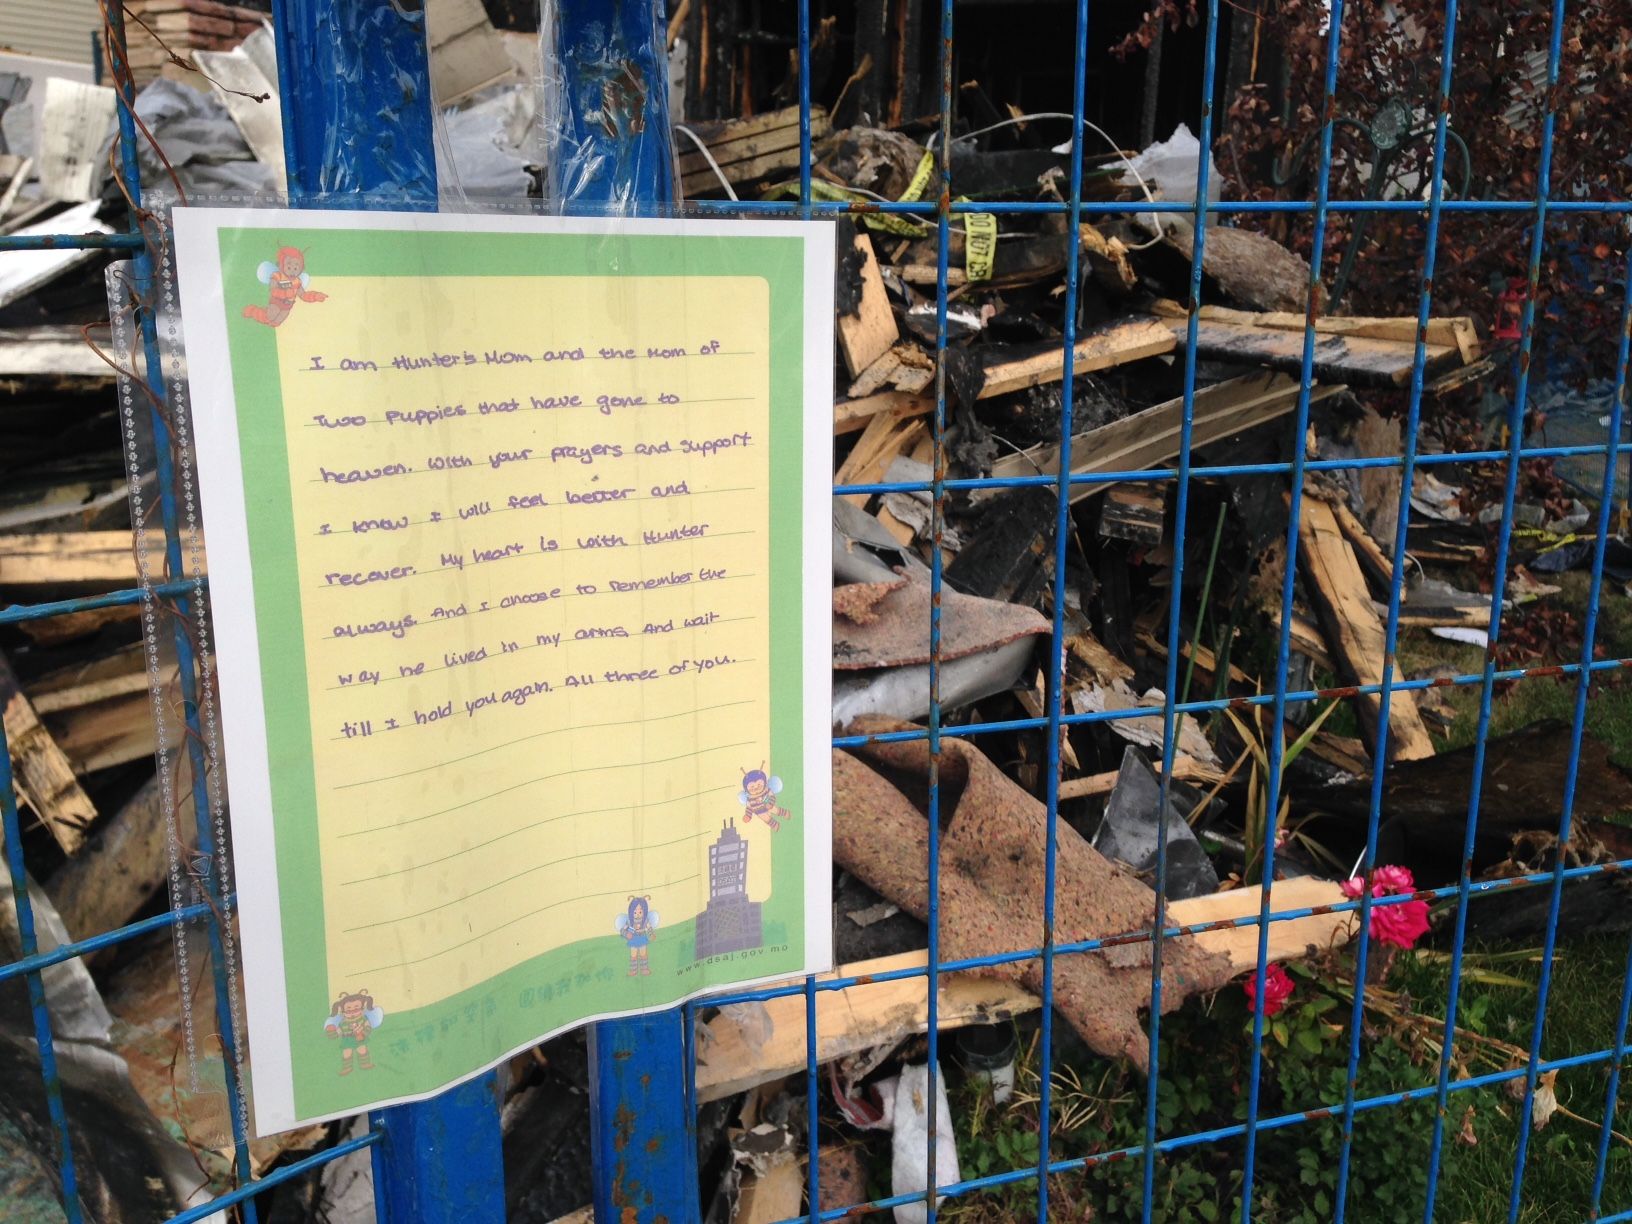 I am Hunter's Mom and the Mom of
Two Puppies that have gone to
heaven. With your prayers and support
I know I will feel better and
recover. My heart is with Hunter
always. And I choose to remember the
way he lived in my arms. And wait
till I hold you again. All three of you.
www.dsaj.gov.mo
DO NOT CR